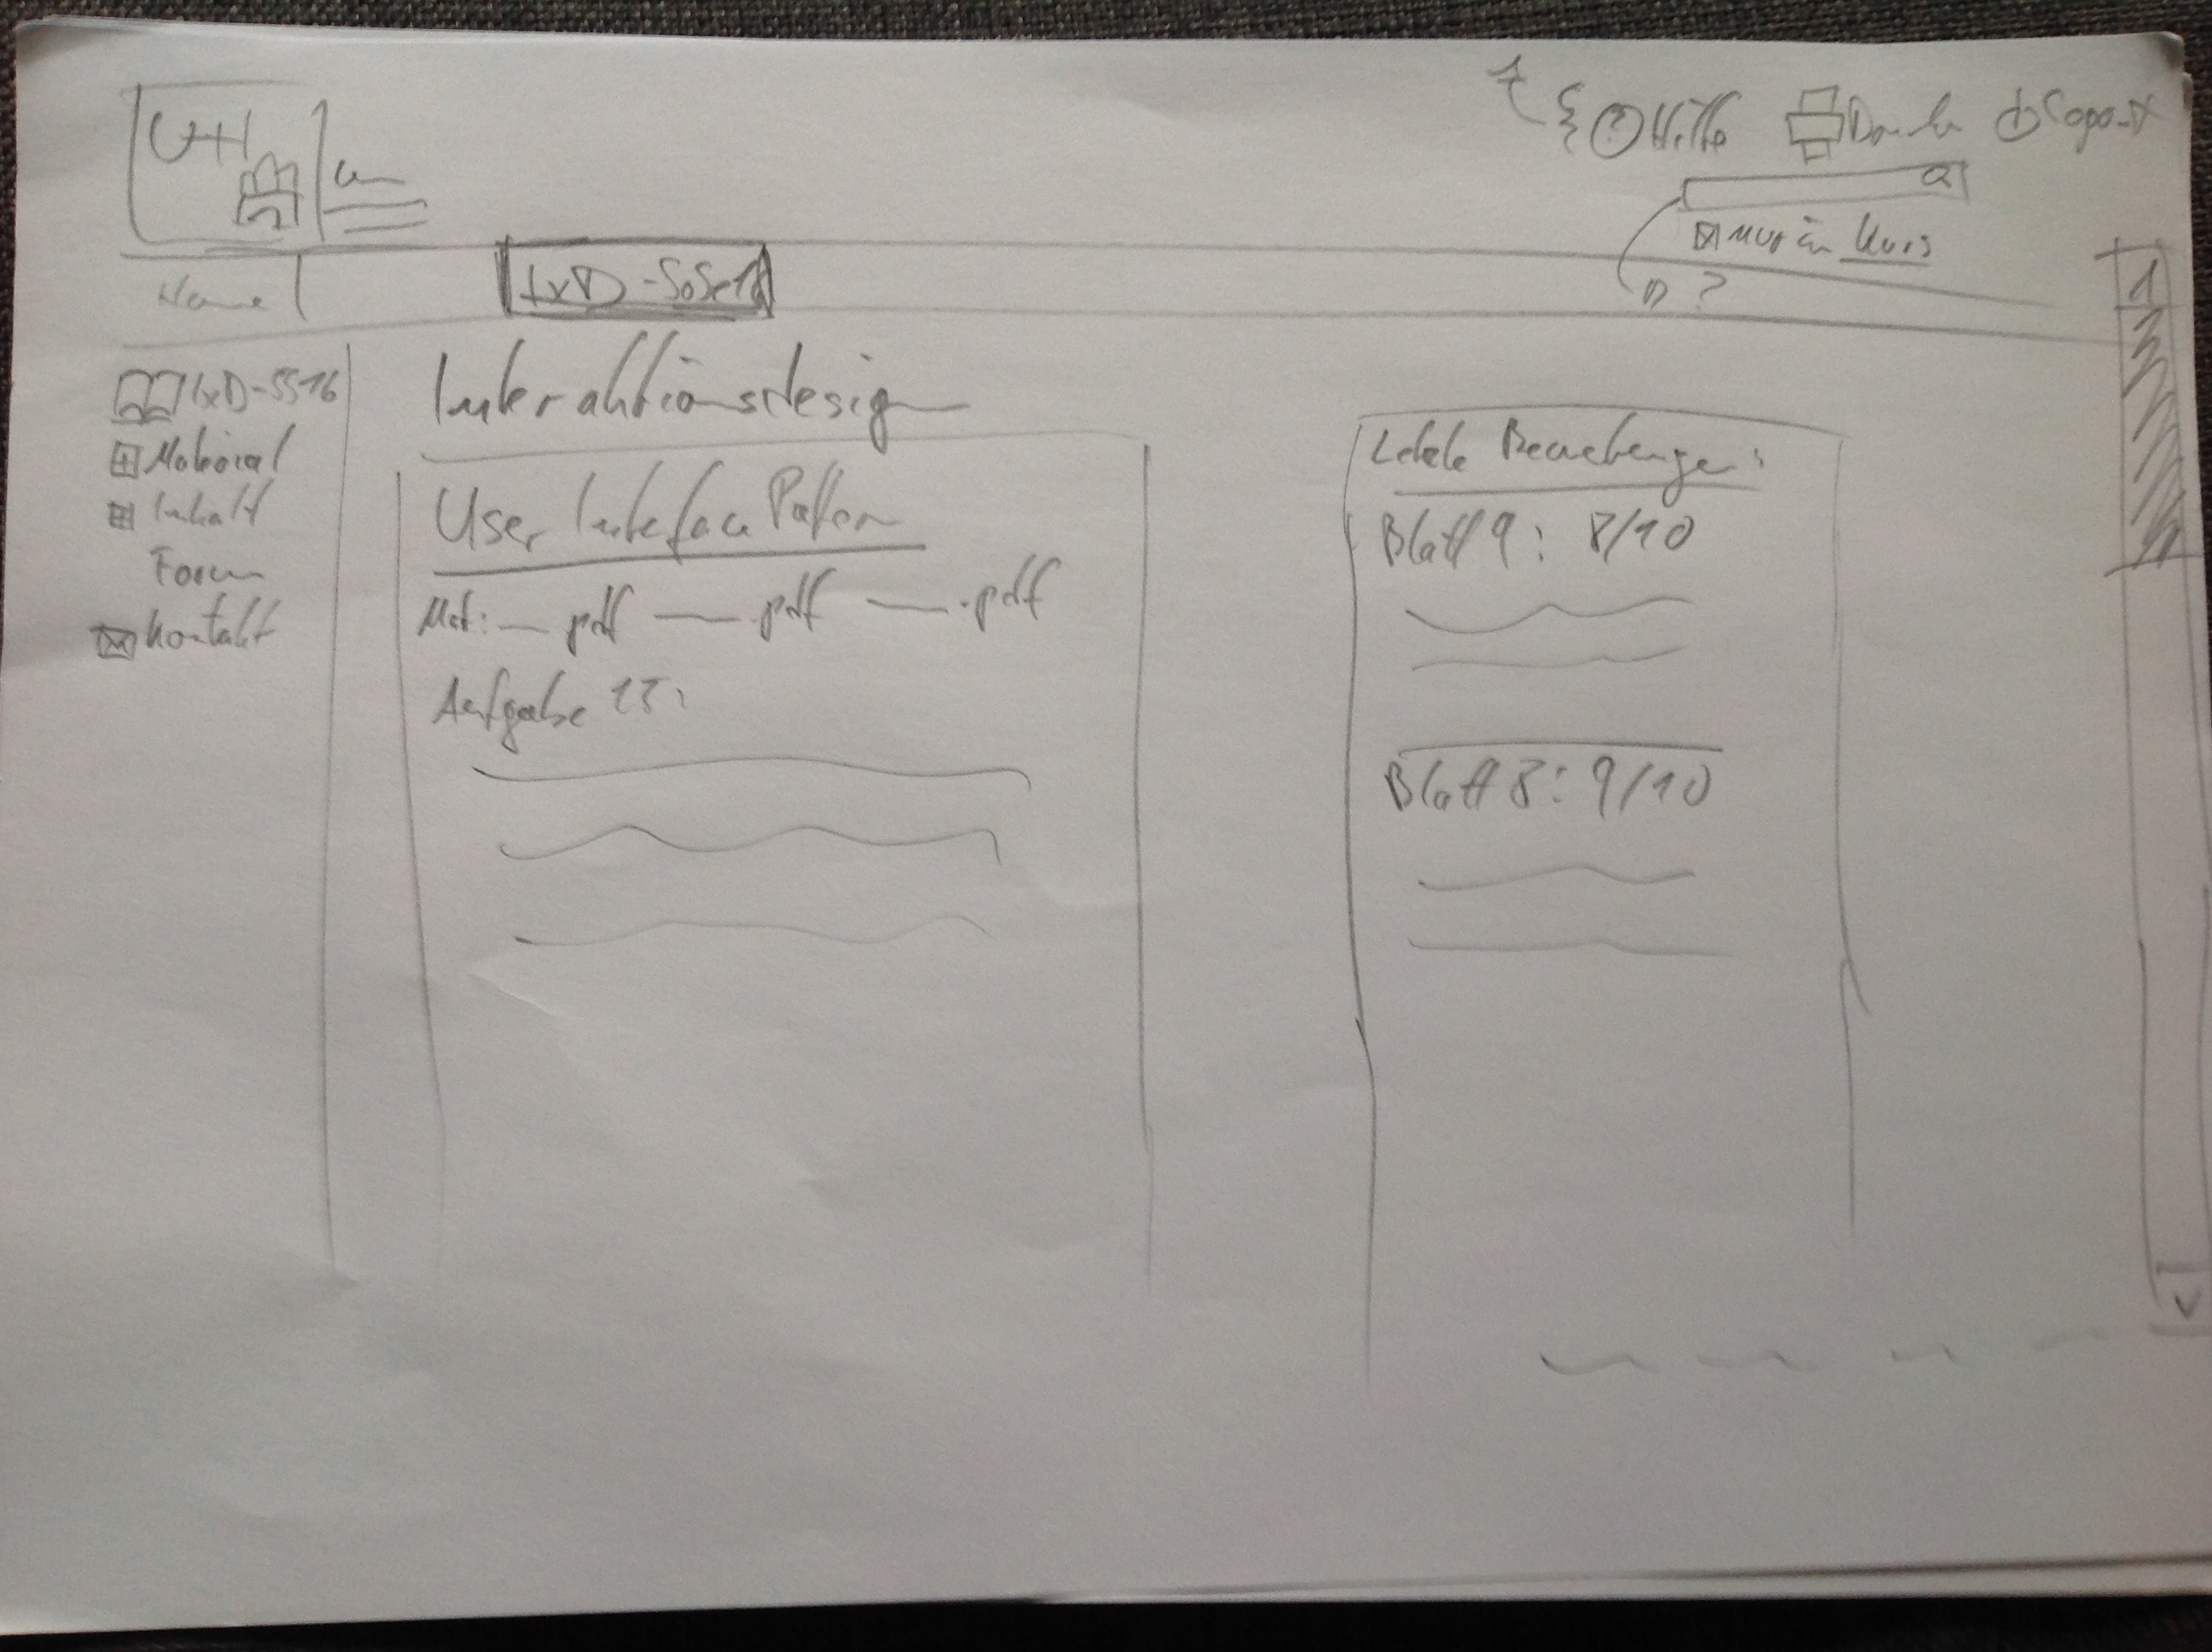 UHH
Hilfe Drucken Logout
nur in Kurs
?
Name
IxD-SoSe16
IxD-SS16
Material
Inhalt
Forum
Kontakt
Interaktionsdesign
User Interface Pattern
Mat: .pdf .pdf .pdf
Aufgabe
Letzte Bewertungen:
Blatt 9: 8/10
Blatt 8: 9/10